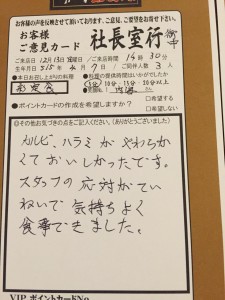 お客様の声を反映させて頂いております。ご意見、ご要望をお寄せ下さい。
お客様
ご意見カード
社長室行
ご来店日 12月13日
ご来店時間 14時30分
生年月日
ご同伴者数 3人
●本日お召し上がりの料理
●料理の提供時間はいかがでしたか
お定食
●ポイントカードの作成を希望しますか?
□希望する
□希望しない
◎その他お気づきの点をご記入ください。(ありがとうございました)
カルビ、ハラミがやわらか
くておいしかったです。
スタッフの応対がてい
ねいで気持ちよく
食事できました。
VIP ポイントカードNo.